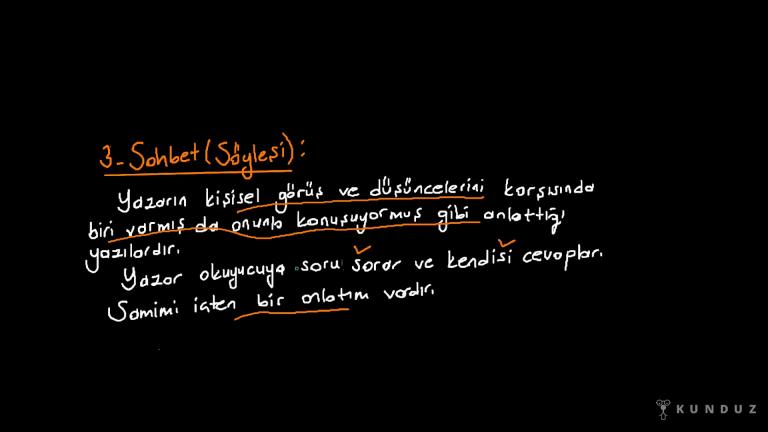 3-Sohbet (Söyleşi):
Yazarın kişisel görüş ve düşüncelerini karşısında
biri varmış da onunla konuşuyormuş gibi anlattığı
yazılardır.
Yazar okuyucuya soru sorar ve kendisi cevaplar.
Samimi içten bir anlatım vardır.
KUNDUZ